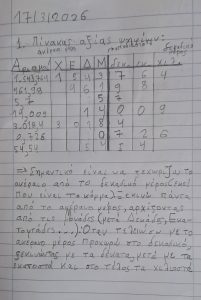 17/3/2026
1. Πίνακας αξίας ψηφίων:
ακέραιο μέρος δεκαδικό μέρος
Αριθμοί Χ Ε Δ Μ δεκ εκ χιλ
1.543,764 1 5 4 3 7 6 4
961,98 9 6 1 9 8
5,7 5 7
14,009 1 4 0 0 9
3.028,4 3 0 2 8 4
0,726 0 7 2 6
54,54 5 4 5 4
=> Σημαντικό είναι να ξεχωρίζω το
ακέραιο από το δεκαδικό μέρος (εκεί
που είναι το κόμμα). Ξεκινώ πάντα
από το ακέραιο μέρος, αρχίζοντας
από τις μονάδες (μετά δεκάδες, Εκα-
τοντάδες...). Όταν τελειώσω με το
ακέραιο μέρος προχωρώ στο δεκαδικό,
ξεκινώντας με τα δέκατα, μετά με τα
εκατοστά και στο τέλος τα χιλιοστά